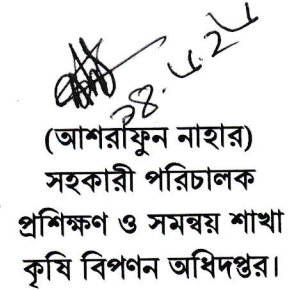 ২৪.৮.২৮
(আশরাফুন নাহার)
সহকারী পরিচালক
প্রশিক্ষণ ও সমন্বয় শাখা
কৃষি বিপণন অধিদপ্তর।